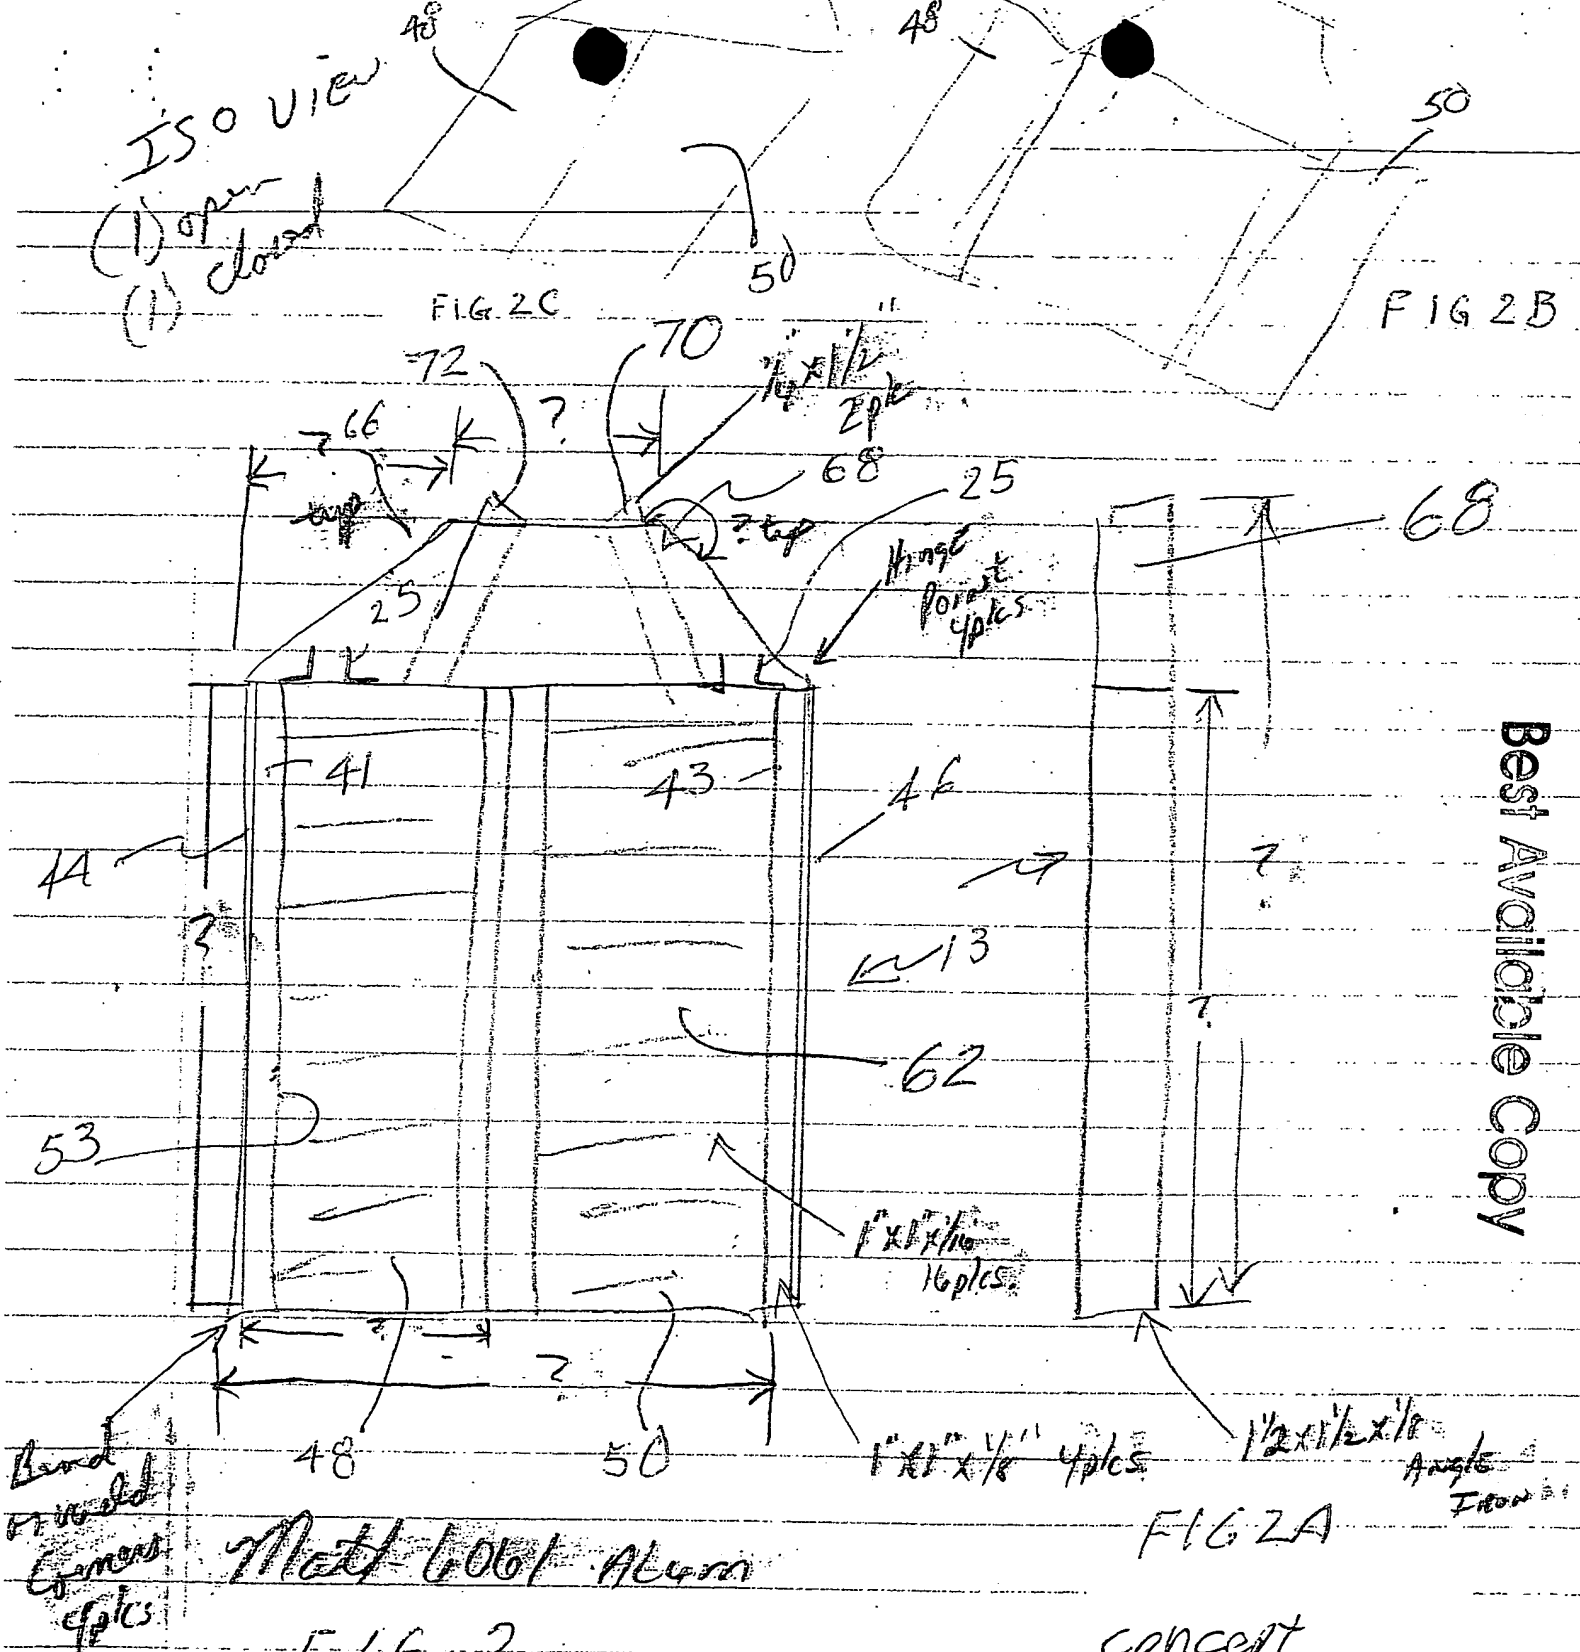 48
48
50
ISO VIEW
(1) open
(1) closed
50
FIG. 2C
FIG 2B
72
70
1/4" x 1 1/2"
2 plc
? 66
?
typ
68
25
68
? typ
Hinge
Point
4plcs
25
41
43
46
44
?
?
13
?
62
53
1" x 1" x 1/16
16 plcs.
?
?
48
50
1" x 1" x 1/8" 4plcs
1 1/2 x 1 1/2 x 1/8
Angle
Iron
Bend
or weld
Corners
4plcs
Matl 6061 Alum
FIG 2A
FIG 2
concept
Best Available Copy